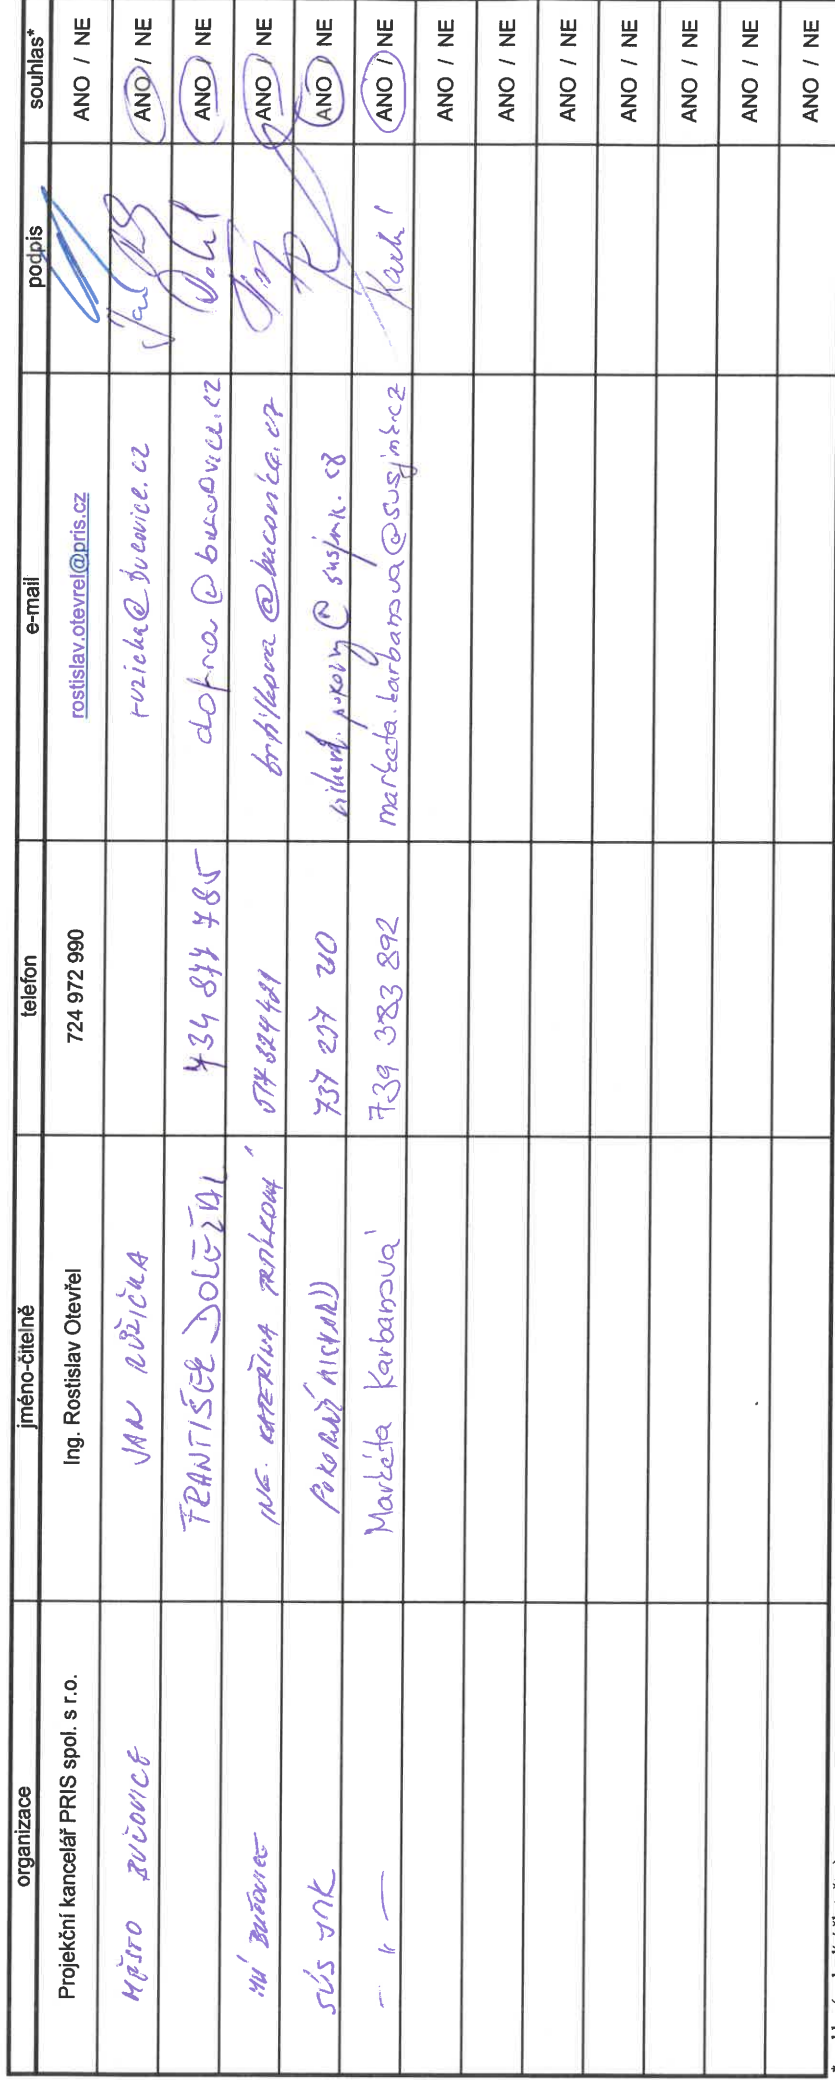 organizace jméno-čitelně telefon e-mail podpis souhlas*
Projekční kancelář PRIS spol. s r.o. Ing. Rostislav Otevřel 724 972 990 rostislav.otevrel@pris.cz ANO / NE
MĚSTO BUČOVICE JAN RŮŽIČKA ruzicka@bucovice.cz ANO / NE
FRANTIŠEK DOLEŽAL 734 877 785 ANO / NE
MÚ BUČOVICE ING. KATEŘINA 517 324 421 ANO / NE
SÚS JMK POKORNÝ RICHARD 737 237 richard.pokorny@susjmk.cz ANO / NE
— " — Markéta Karbanová 739 383 892 marketa.karbanova@susjmk.cz ANO / NE
ANO / NE
ANO / NE
ANO / NE
ANO / NE
ANO / NE
ANO / NE
ANO / NE